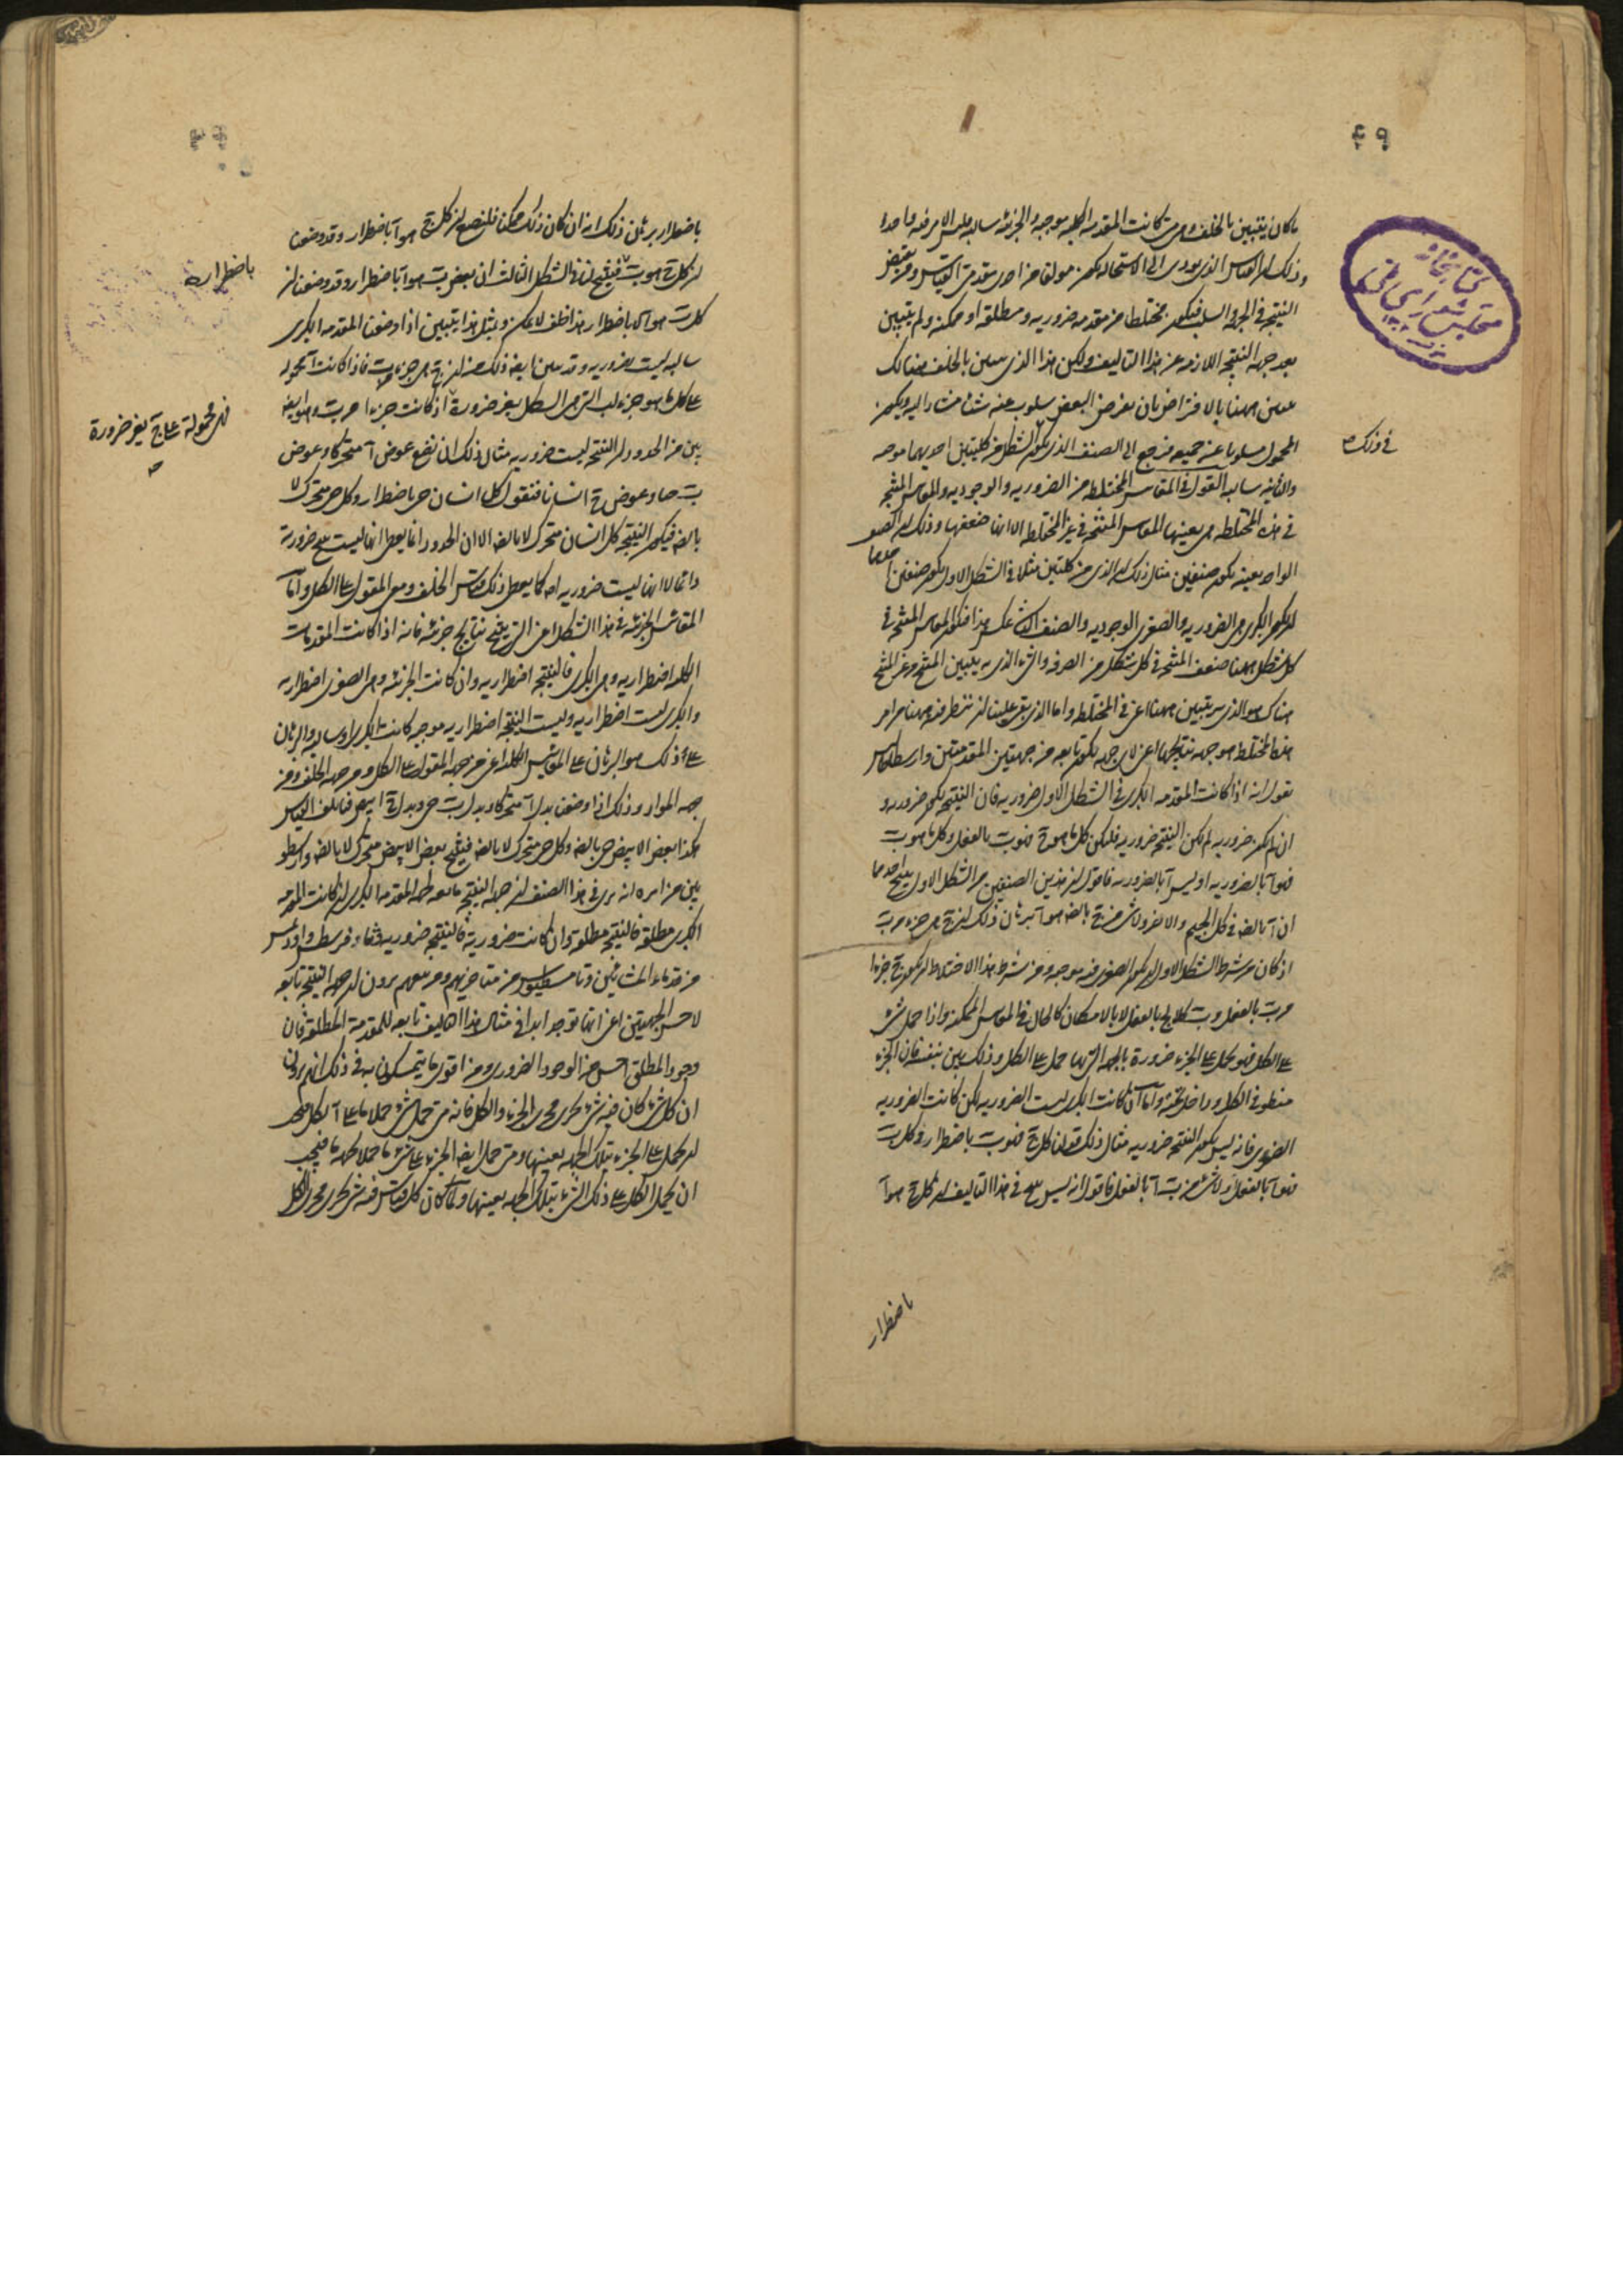 ما كان يتبين بالخلف وهي متى كانت المقدمة الكلية موجبة والجزئية سالبة فليس الامر فيه واحدا
وذلك ان القياس الذي يودي الى الاستحالة يكون مولفا من احدى مقدمتي القياس ومن نقيض
النتيجة في الجهة والسلب فيكون مختلطا من مقدمة ضرورية ومطلقة او ممكنة ولم يتبين
بعد جهة النتيجة اللازمة عن هذا التاليف ولكن هذا الذي يتبين بالخلف هنالك
يتبين ههنا بالافتراض بان نفرض البعض مسلوب عنه شيئا مشار اليه ويكون
المحمول مسلوبا عن جميعه فيرجع الى الصنف الذي يكون في الشكل من كليتين احديهما موجبة
في ذلك
والثانية سالبة القول في المقاييس المختلطة من الضرورية والوجودية والمقاييس المنتجة
في هذه المختلطة هي بعينها المقاييس المنتجة في غير المختلطة الا انها ضعفها وذلك ان الصنف
الواحد بعينه يكون صنفين مثال ذلك ان الذي من كليتين مثلا في الشكل الاول يكون صنفين احدهما
ان يكون الكبرى هي الضرورية والصغرى الوجودية والصنف الثاني عكس هذا فتكون المقاييس المنتجة في
كل شكل ههنا ضعف المنتجة في كل شكل من الصرفة والشيء الذي به يتبين المنتج من غير المنتج
هناك هو الذي به يتبين ههنا اعني في المختلطة واما الذي بقي علينا ان ننظر فيه ههنا من امر
هذا المختلط هو جهة نتائجها اعني لاي جهة تكون تابعة من جهتي المقدمتين وارسطوطاليس
يقول انه اذا كانت المقدمة الكبرى في الشكل الاول ضرورية فان النتيجة تكون ضرورية و
ان لم تكن ضرورية لم تكن النتيجة ضرورية فليكن كل ما هو ج فهو ب بالفعل وكل ما هو ب
فهو آ بالضرورية او ليس آ بالضرورية فاقول ان هذين الصنفين من الشكل الاول ينتج احدهما
ان آ بالضرورة في كل الجيم والاخر ولا شيء من ج بالضرورة هو آ برهان ذلك ان ج هي جزء من ب
اذ كان من شرط الشكل الاول ان يكون الصغرى فيه موجبة ومن شرط هذا الاختلاط ان يكون ج جزءا
من ب بالفعل وب كلا لج بالفعل لا بالامكان كالحال في المقاييس الممكنة واذا حمل شيء
على الكل فهو يحمل على الجزء ضرورة بالجهة التي بها حمل على الكل وذلك بين بنفسه فان الجزء
منطو في الكل وداخل تحته واما ان كانت الكبرى ليست الضرورية لكن كانت الضرورية
الصغرى فانه ليس يكون النتيجة ضرورية مثال ذلك قولنا كل ج فهو ب باضطرار وكل ب
فهو آ بالفعل او لا شيء من ب آ بالفعل فاقول انه ليس ينتج في هذا التاليف ان كل ج هو آ
باضطرار
باضطرار برهان ذلك انه ان كان ذلك ممكنا فلنضع ان كل ج هو آ باضطرار وقد وضعنا
ان كل ج هو ب فينتج لنا في الشكل الثالث ان بعض ب هو آ باضطرار وقد وضعنا ان
باضطرار
كل ب هو آ لا باضطرار هذا خلف لا يمكن وبمثل هذا يتبين اذا وضعنا المقدمة الكبرى
سالبة ليست ضرورية وقد يتبين ايضا ذلك من ان ج هي جزء من ب فاذا كانت آ محمولة
على كل ما هو جزء لب التي هي الكل بغير ضرورة اذ كانت جزءا من ب وهو ايضا
فهي محمولة على ج بغير ضرورة
بين من الحدود ان النتيجة ليست ضرورية مثال ذلك ان نضع عوض آ متحركا وعوض
ب حيا وعوض ج انسانا فنقول كل انسان حي باضطرار وكل حي متحرك لا
بالضرورة فيكون النتيجة كل انسان متحرك لا بالضرورة الا ان الحدود انما يعطي انها ليست ينتج ضرورية
دائما لا انها ليست ضرورية اصلا كما يعطي ذلك قياس الخلف ومعنى المقول على الكل واما
المقاييس الجزئية في هذا الشكل اعني التي ينتج نتائج جزئية فانه اذا كانت المقدمات
الكلية اضطرارية وهي الكبرى فالنتيجة اضطرارية وان كانت الجزئية وهي الصغرى اضطرارية
والكبرى ليست اضطرارية وليست النتيجة اضطرارية موجبة كانت الكبرى او سالبة والبرهان
على ذلك هو البرهان على المقاييس الكلية اعني من جهة المقول على الكل ومن جهة الخلف ومن
جهة المواد وذلك اذا وضعنا بدل آ متحركا وبدل ب حي وبدل ج ابيض فيأتلف القياس
هكذا بعض الابيض حي بالضرورة وكل حي متحرك لا بالضرورة فينتج بعض الابيض متحرك لا بالضرورة وارسطو
بين من امره انه يرى في هذا الصنف ان جهة النتيجة تابعة لجهة المقدمة الكبرى ان كانت المقدمة
الكبرى مطلقة فالنتيجة مطلقة وان كانت ضرورية فالنتيجة ضرورية وثاوفرسطس واوديمس
من قدماء المشائين وثامسطيوس من متاخريهم ومن تبعهم يرون ان جهة النتيجة تابعة
لاخس الجهتين اعني انها توجد ابدا في مثال هذا التاليف تابعة للمقدمة المطلقة فان
وجود المطلق اخس من الوجود الضروري ومن اقوى ما يتمسكون به في ذلك انهم يرون
ان كل شيء كان فيه شيء يجري مجرى الجزء والكل فانه متى حمل شيء حملا ما على الكل فيجب
ان يحمل على الجزء بتلك الجهة بعينها ومتى حمل ايضا الجزء على شيء ما حملا بجهة ما فيجب
ان يحمل الكل على ذلك الشيء بتلك الجهة بعينها ولما كان كل قياس فيه شيء يجري مجرى الكل